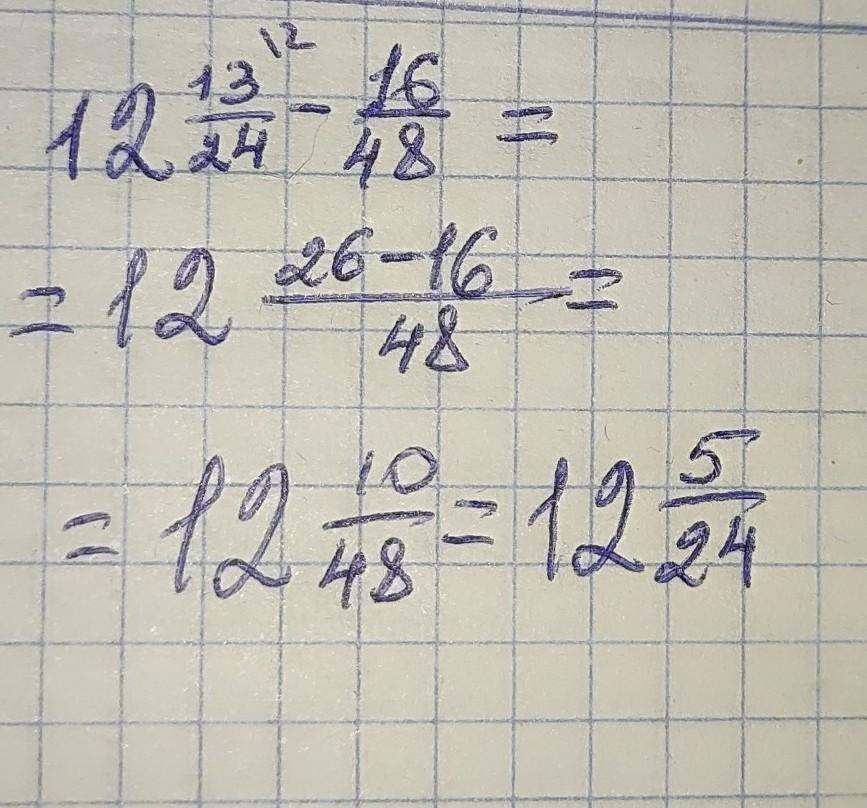 12 13/24 \2 - 16/48 =
= 12 26-16/48 =
= 12 10/48 = 12 5/24